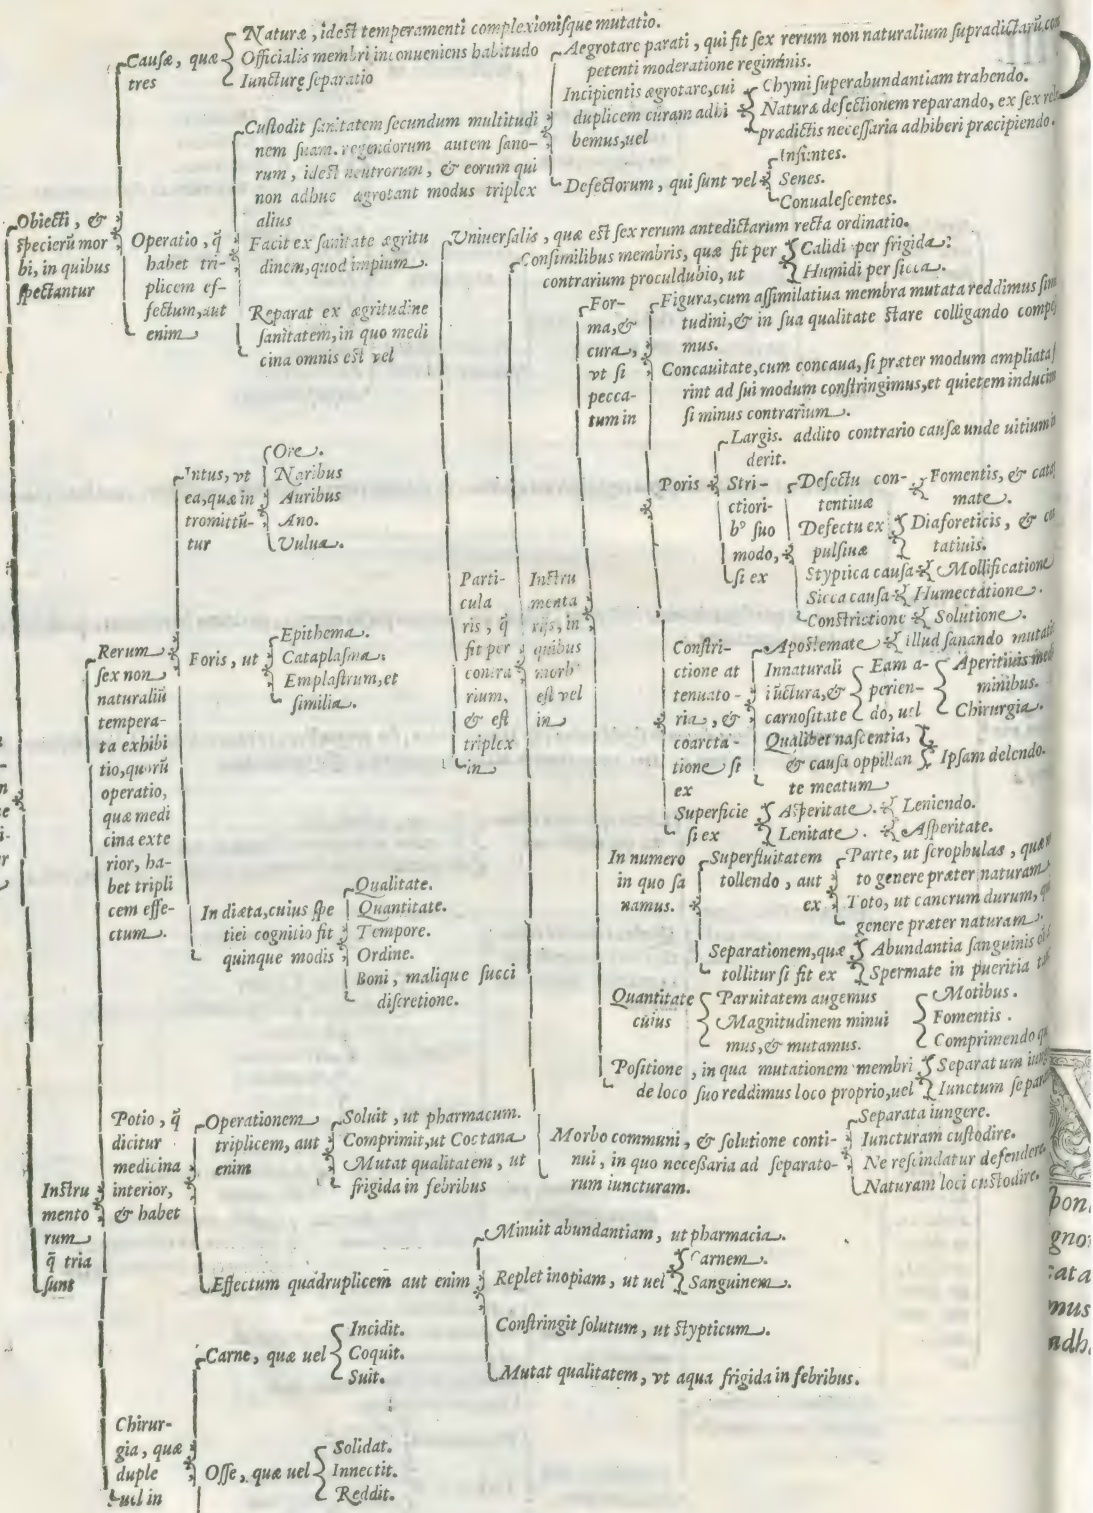 Obiecti, &
specierū mor
bi, in quibus
spectantur
Causæ, quæ
tres
Naturæ, idest temperamenti complexionisque mutatio.
Officialis membri inconueniens habitudo
Iuncturę separatio
Operatio, q̄
habet tri-
plicem ef-
fectum, aut
enim
Custodit sanitatem secundum multitudi
nem suam. regendorum autem sano-
rum, idest neutrorum, & eorum qui
non adhuc ægrotant modus triplex
alius
Aegrotare parati, qui fit sex rerum non naturalium supradictarū com
petenti moderatione regiminis.
Incipientis ægrotare, cui
duplicem curam adhi
bemus, uel
Chymi superabundantiam trahendo.
Naturæ defectionem reparando, ex sex
prædictis necessaria adhiberi præcipiendo.
Defectorum, qui sunt vel
Infantes.
Senes.
Conualescentes.
Facit ex sanitate ægritu
dinem, quod impium.
Reparat ex ægritudine
sanitatem, in quo medi
cina omnis est vel
Uniuersalis, quæ est sex rerum antedictarum recta ordinatio.
Parti-
cula
ris, q̄
fit per
contra
rium,
& est
triplex
in
Consimilibus membris, quæ fit per
contrarium proculdubio, ut
Calidi per frigida.
Humidi per sicca.
Instru
menta
rijs, in
quibus
morb
est vel
in
For-
ma, &
cura,
vt si
pecca-
tum in
Figura, cum assimilatiua membra mutata reddimus
tudini, & in sua qualitate stare colligando
mus.
Concauitate, cum concaua, si præter modum ampliata
rint ad sui modum constringimus, et quietem
si minus contrarium.
Poris
Largis. addito contrario causæ unde uitium
derit.
Stri-
ctiori-
b⁹ suo
modo,
si ex
Defectu con-
tentiuæ
Fomentis, &
mate.
Defectu ex
pulsiuæ
Diaforeticis, &
tatiuis.
Styptica causa
Mollificatione
Sicca causa
Humectatione.
Constrictione
Solutione.
Constri-
ctione at
tenuato-
ria, &
coarcta-
tione si
ex
Apostemate
illud sanando
Innaturali
iūctura, &
carnositate
Eam a-
perien-
do, uel
Aperitiuis
minibus.
Chirurgia.
Qualibet nascentia,
& causa oppillan
te meatum
Ipsam delendo.
Superficie
si ex
Asperitate.
Leniendo.
Lenitate.
Asperitate.
In numero
in quo sa
namus.
Superfluitatem
tollendo, aut
ex
Parte, ut scrophulas,
to genere præter naturam
Toto, ut cancrum durum,
genere præter naturam.
Separationem, quæ
tollitur si fit ex
Abundantia sanguinis
Spermate in pueritia
Quantitate
cuius
Paruitatem augemus
Magnitudinem minui
mus, & mutamus.
Motibus.
Fomentis.
Comprimendo
Positione, in qua mutationem membri
de loco suo reddimus loco proprio, uel
Separatum
Iunctum
Morbo communi, & solutione conti-
nui, in quo necessaria ad separato-
rum iuncturam.
Separata iungere.
Iuncturam custodire.
Ne rescindatur defendere.
Naturam loci custodire.
Instru
mento
rum
q̄ tria
sunt
Rerum
sex non
naturaliū
tempera-
ta exhibi
tio, quorū
operatio,
quæ medi
cina exte
rior, ha-
bet tripli
cem effe-
ctum.
Intus, vt
ea, quæ in
tromittū-
tur
Ore.
Naribus
Auribus
Ano.
Vulua.
Foris, ut
Epithema.
Cataplasma.
Emplastrum, et
similia.
In diæta, cuius spe
tiei cognitio fit
quinque modis
Qualitate.
Quantitate.
Tempore.
Ordine.
Boni, malique succi
discretione.
Potio, q̄
dicitur
medicina
interior,
& habet
Operationem
triplicem, aut
enim
Soluit, ut pharmacum.
Comprimit, ut Coctana
Mutat qualitatem, ut
frigida in febribus
Effectum quadruplicem aut enim
Minuit abundantiam, ut pharmacia.
Replet inopiam, ut uel
Carnem.
Sanguinem.
Constringit solutum, ut stypticum.
Mutat qualitatem, vt aqua frigida in febribus.
Chirur-
gia, quæ
duple
uel in
Carne, quæ uel
Incidit.
Coquit.
Suit.
Osse, quæ uel
Solidat.
Innectit.
Reddit.